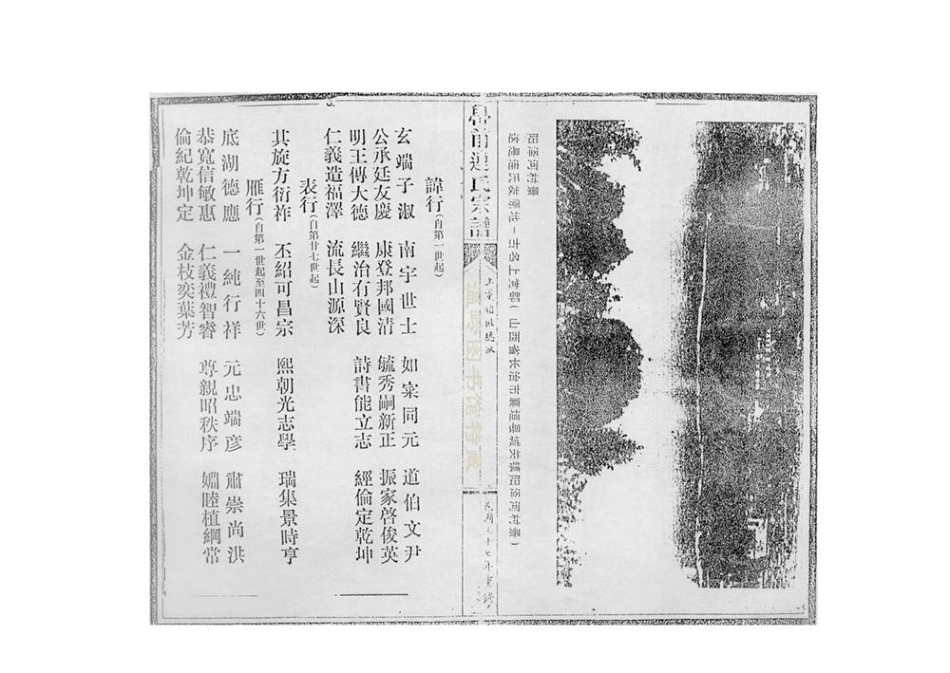 阳泽河村景
这是連氏发祥地－古名上党郡（山西省长治市襄垣县城关镇阳泽河村景）
連氏宗譜
諱行（自第一世起）
玄端子淑 南宇世士 如寀同元 道伯文尹
公承廷友慶 康登邦國清 毓秀嗣新正 振家啓俊英
明王傳大德 繼治有賢良 詩書能立志 經倫定乾坤
仁義造福澤 流長山源深
表行（自第廿七世起）
其旋方衍祚 丕紹可昌宗 熙朝光志學 瑞集景時亨
雁行（自第一世起至四十六世）
底湖德應 一純行祥 元忠端彥 肅崇尚洪
恭寬信敏惠 仁義禮智睿 尊親昭秩序 婣睦植綱常
倫紀乾坤定 金枝奕葉芳